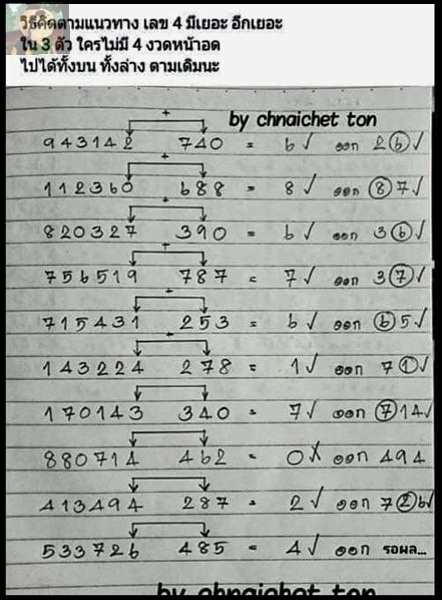 วิธีคิดตามแนวทาง เลข 4 มีเยอะ อีกเยอะ
ใน 3 ตัว ใครไม่มี 4 งวดหน้าอด
ไปได้ทั้งบน ทั้งล่าง ตามเดิมนะ
by chnaichet ton
+
943142 740 = 6 √ ออก 26 √
+
112360 688 = 8 √ ออก 87 √
+
820327 390 = 6 √ ออก 36 √
+
756519 787 = 7 √ ออก 37 √
+
715431 253 = 6 √ ออก 65 √
143224 278 = 1 √ ออก 71 √
170143 340 = 7 √ ออก 714 √
880714 462 = 0 X ออก 494
413494 287 = 2 √ ออก 726 √
533726 485 = 4 √ ออก รอผล...
by chnaichet ton